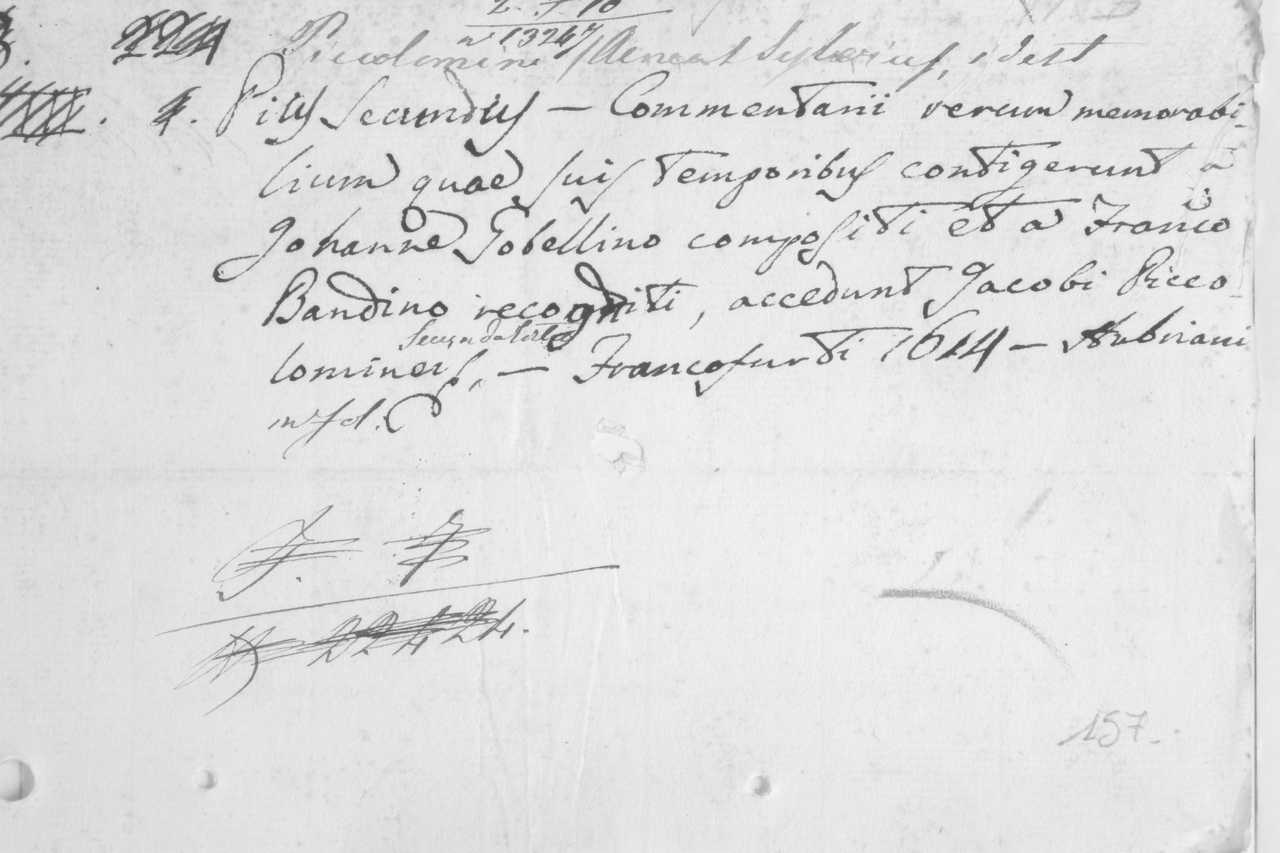 2. J. 10
n° 13267
Piccolomini /Aeneas Sylvius, idest
4. Pius Secundus — Commentarii rerum memorabi-
lium quae suis temporibus contigerunt a
Johanne Gobellino compositi et a Franco
Bandino recogniti, accedunt Jacobi Picco-
Secunda
lomineis, — Francofurti 1614 — Aubriani
in fol.
22424.
157.